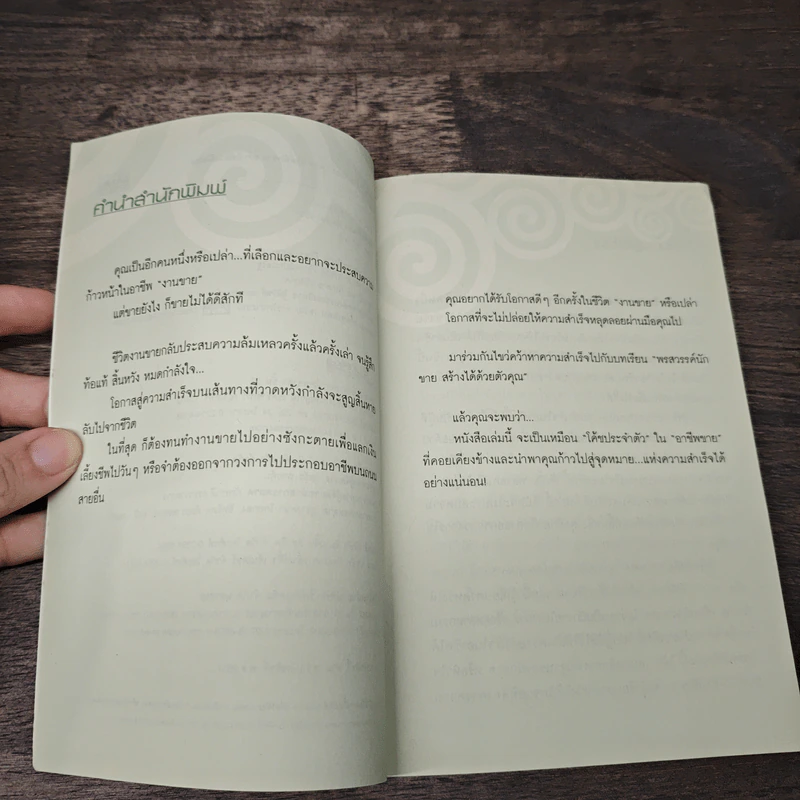 คำนำสำนักพิมพ์
คุณเป็นอีกคนหนึ่งหรือเปล่า...ที่เลือกและอยากจะประสบความ
ก้าวหน้าในอาชีพ "งานขาย"
แต่ขายยังไง ก็ขายไม่ได้ดีสักที
ชีวิตงานขายกลับประสบความล้มเหลวครั้งแล้วครั้งเล่า จนรู้สึก
ท้อแท้ สิ้นหวัง หมดกำลังใจ...
โอกาสสู่ความสำเร็จบนเส้นทางที่วาดหวังกำลังจะสูญสิ้นหาย
ลับไปจากชีวิต
ในที่สุด ก็ต้องทนทำงานขายไปอย่างซังกะตายเพื่อแลกเงิน
เลี้ยงชีพไปวันๆ หรือจำต้องออกจากวงการไปประกอบอาชีพบนถนน
สายอื่น
คุณอยากได้รับโอกาสดีๆ อีกครั้งในชีวิต "งานขาย" หรือเปล่า
โอกาสที่จะไม่ปล่อยให้ความสำเร็จหลุดลอยผ่านมือคุณไป
มาร่วมกันไขว่คว้าหาความสำเร็จไปกับบทเรียน "พรสวรรค์นัก
ขาย สร้างได้ด้วยตัวคุณ"
แล้วคุณจะพบว่า...
หนังสือเล่มนี้ จะเป็นเหมือน "โค้ชประจำตัว" ใน "อาชีพขาย"
ที่คอยเคียงข้างและนำพาคุณก้าวไปสู่จุดหมาย...แห่งความสำเร็จได้
อย่างแน่นอน!